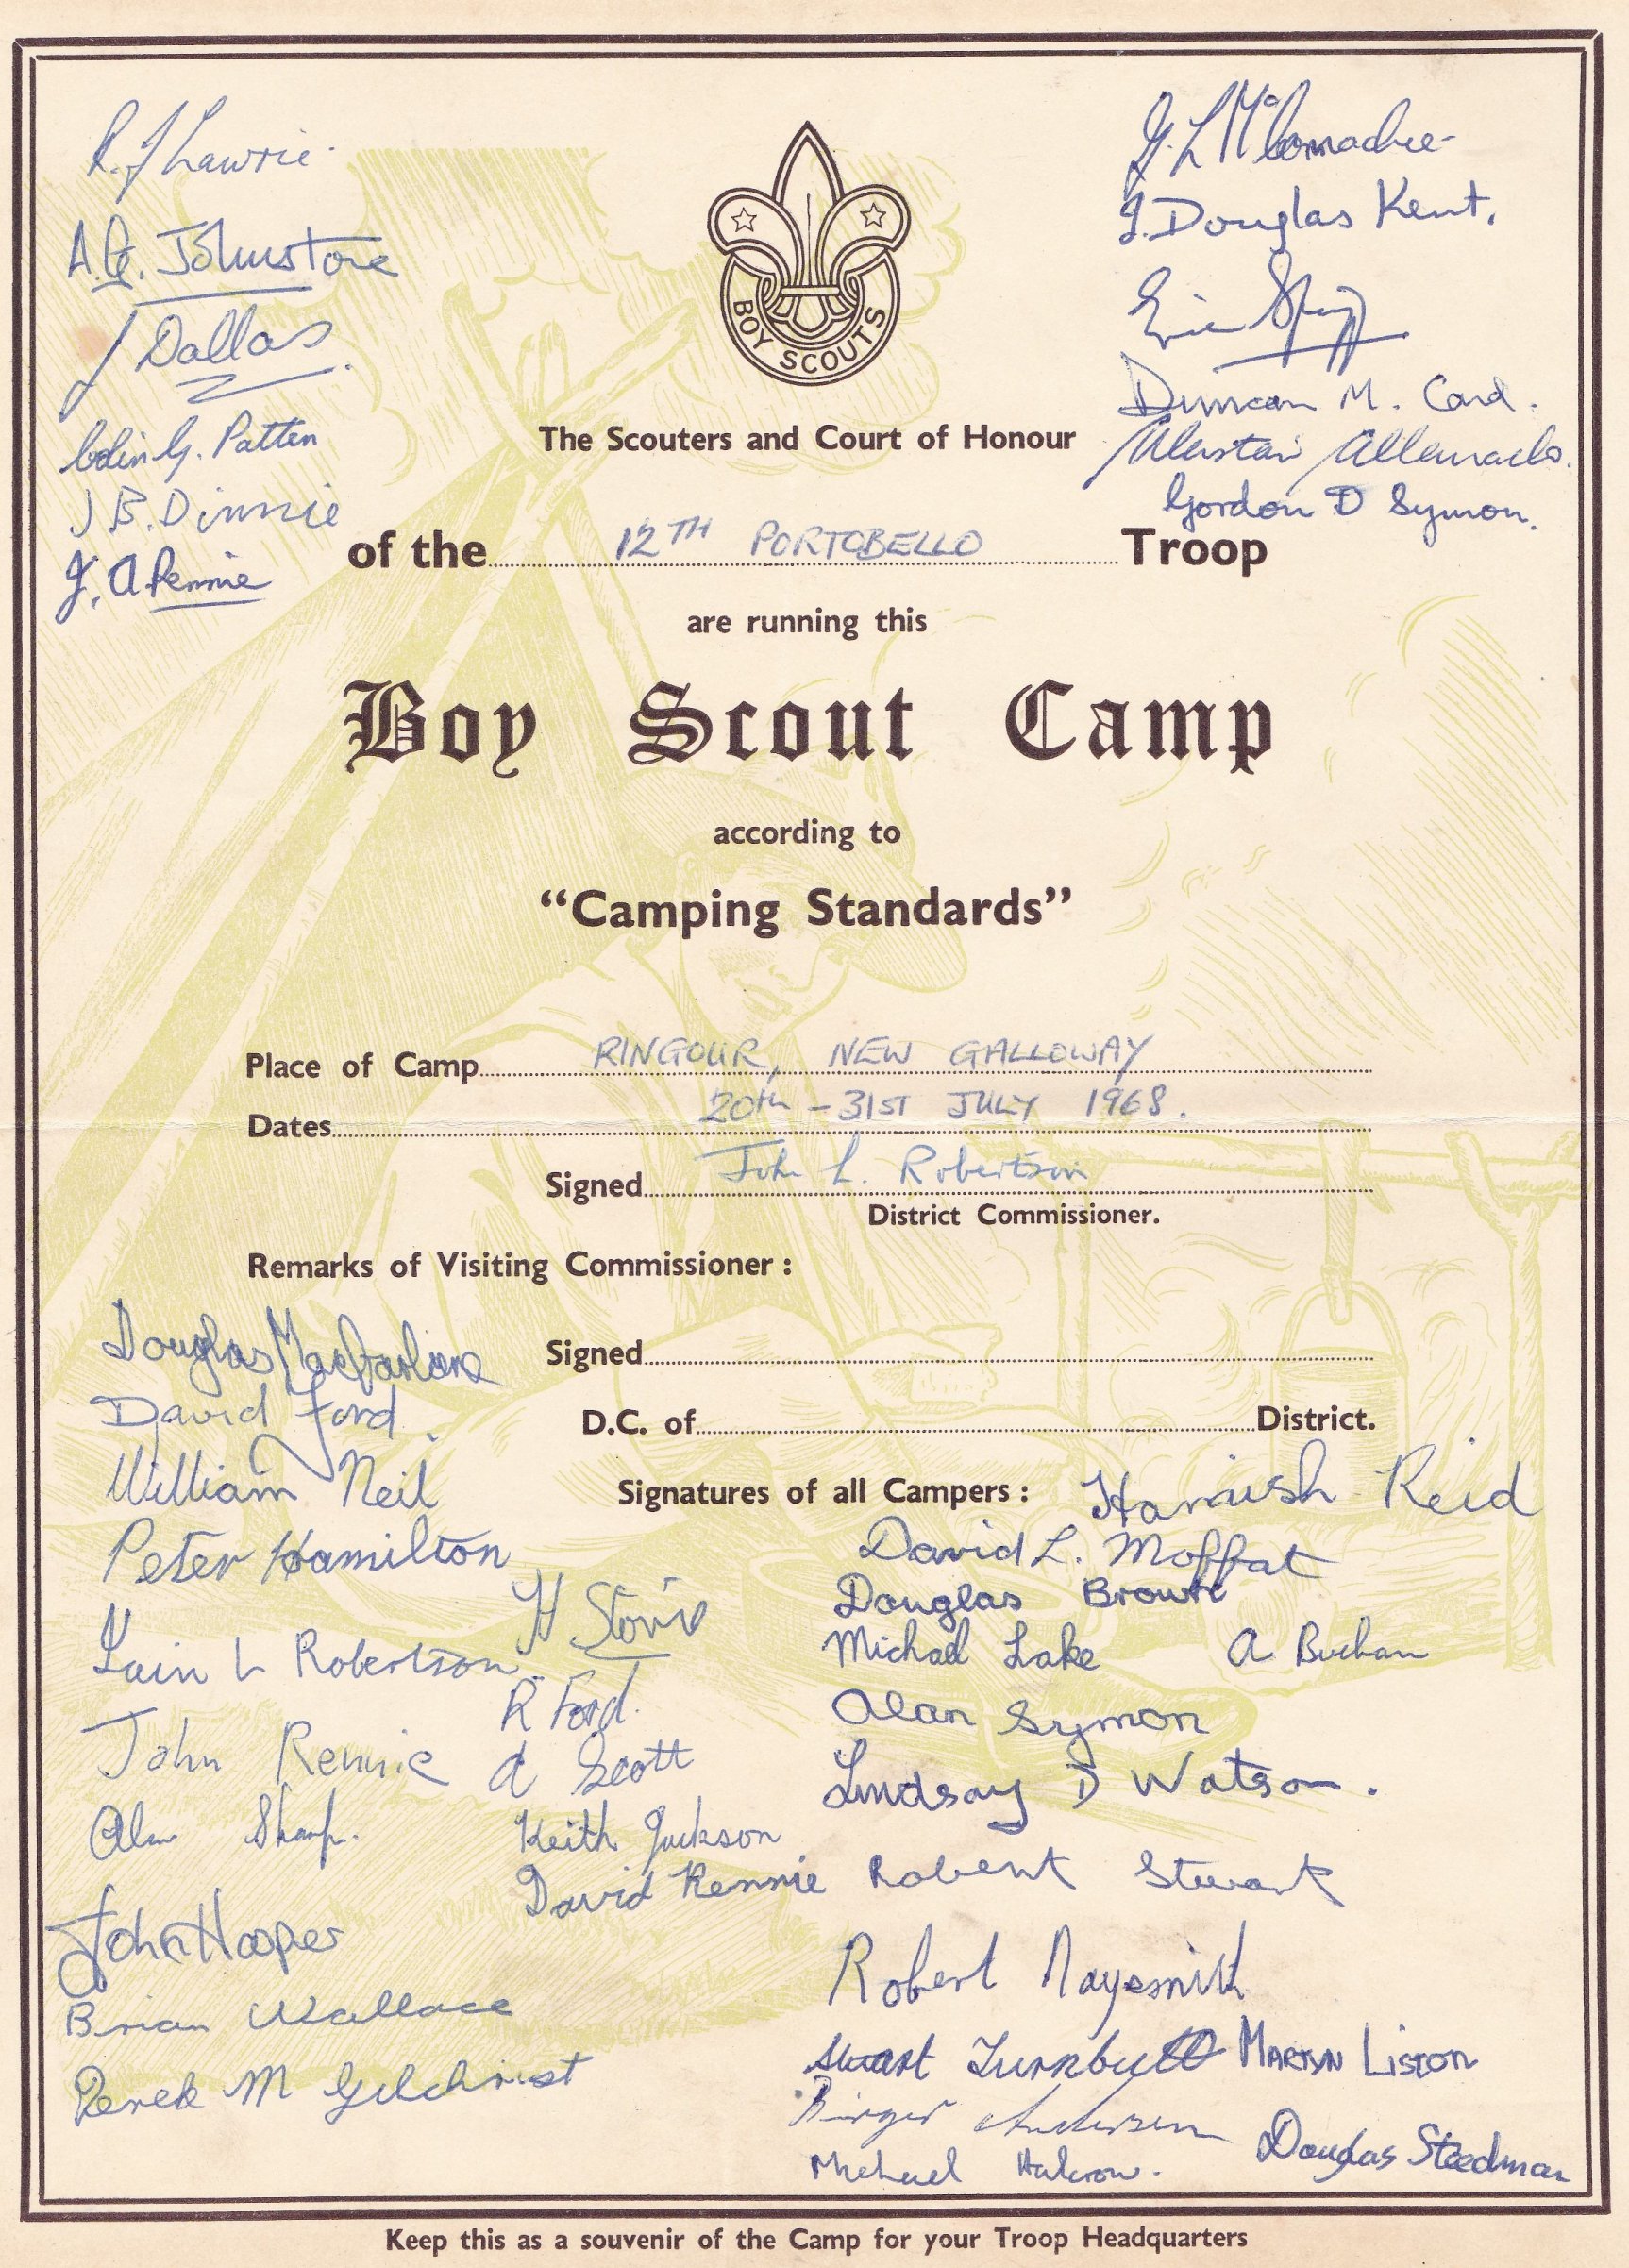 R. J Lawrie
A.G. Johnstone
J Dallas
Colin G. Patten
J B. Dinnie
J. A Rennie
G. L McConnachie
J. Douglas Kent.
Eric
Duncan M. Card.
Alastair Allanach.
Gordon D Symon.
BOY SCOUTS
The Scouters and Court of Honour
of the 12TH PORTOBELLO Troop
are running this
Boy Scout Camp
according to
“Camping Standards”
Place of Camp RINGOUR, NEW GALLOWAY
Dates 20th - 31ST JULY 1968.
Signed John L. Robertson
District Commissioner.
Remarks of Visiting Commissioner :
Signed
D.C. of District.
Signatures of all Campers :
Douglas Macfarlane
David Ford.
William Neil
Peter Hamilton
Iain L Robertson
John Rennie
Alan Sharp.
John Hooper
Brian Wallace
Derek M Gilchrist
H Storie
R Ford.
A Scott
Keith Jackson
David Rennie
Hamish Reid
David L. Moffat
Douglas Brown
Michael Lake A Buchan
Alan Symon
Lindsay D Watson.
Robert Stewart
Robert Naysmith
Stuart Turnbull MARTYN LISTON
Birger Andersen
Michael Halcrow. Douglas Steedman
Keep this as a souvenir of the Camp for your Troop Headquarters